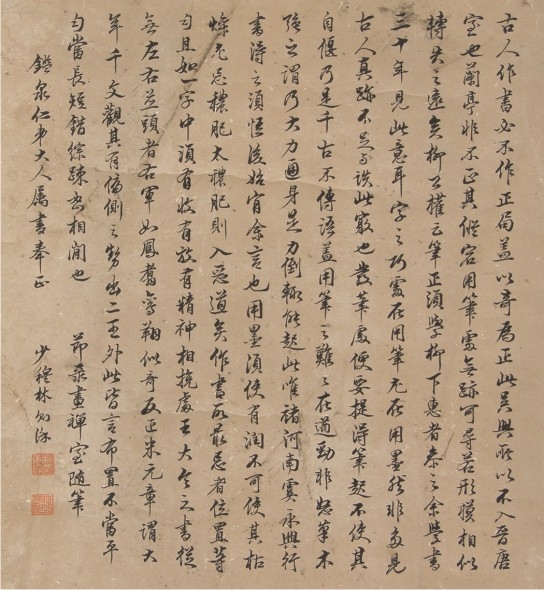 古人作書必不作正局蓋以奇為正此吳興所以不入晉唐
室也蘭亭非不正其縱宕用筆處無跡可尋若形模相似
轉去之遠矣柳公權云筆正須學柳下惠者參之余學書
三十年見此意耳字之巧處在用筆尤在用墨然非多見
古人真跡不足與談此竅也發筆處便要提得筆起不使其
自偃乃是千古不傳語蓋用筆之難難在遒勁非怒筆木
強之謂乃大力通身是力倒輒能起此惟褚河南虞永興行
書得之須悟後始肯余言也用墨須使有潤不可使其枯
燥尤忌穠肥太穠肥則入惡道矣作書所最忌者位置等
勻且如一字中須有收有放有精神相挽處王大令之書從
無左右並頭者右軍如鳳翥鸞翔似奇反正米元章謂大
年千文觀其有偏側之勢出二王外此皆言布置不當平
勻當長短錯綜疏密相間也 節彔畫禪室隨筆
鑑泉仁弟大人屬書奉正 少穆林則徐